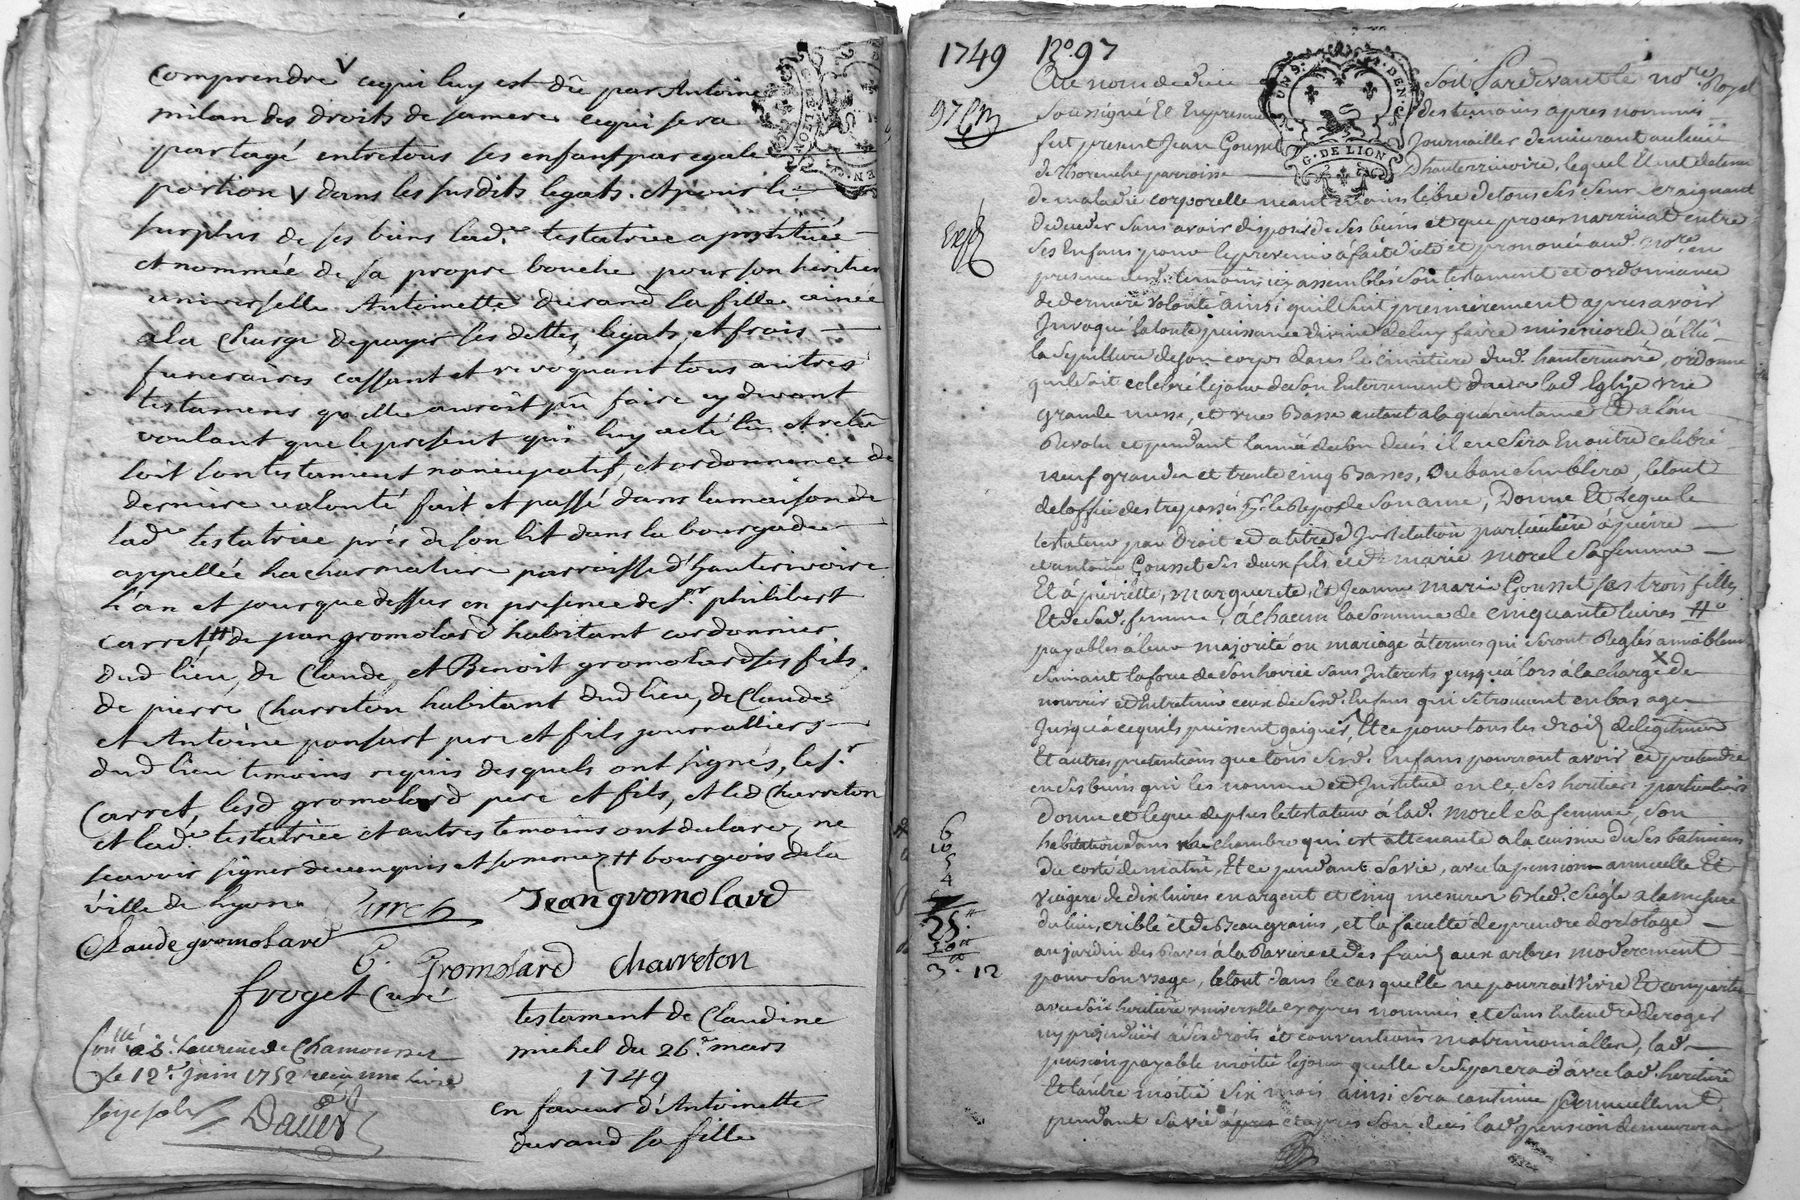 comprendre v cequi luy est dû par Antoine
milan des droits de sa mere cequi sera
partagé entre tous ses enfant par egale
portion v dans les susdits legats. Et pour le
surplus de ses biens lad.e testatrice a institué
et nommée de sa propre bouche pour son heritiere
universelle Antoinette durand sa fille ainée
a la charge de payer ses dettes, legats, et frais
funeraires cassant et revoquant tous autres
testamens qu'elle auroit pû faire cy devant
voulant que le present qui luy a eté lû et relû
soit son testament noncupatif, et ordonnance de
derniere volonté fait et passé dans la maison de
lad.e testatrice près de son lit dans la bourgade
appellée parroisse d'hauterivoire
L'an et jour que dessus en presence de s.r philibert
carret, # de jean gromolard habitant cordonnier
dud lieu, de Claude, et Benoit gromolard ses fils
de pierre charreton habitant dud lieu, de Claude
et Antoine ponsart pere et fils journalliers
dud lieu temoins requis desquels ont signés, les.r
Carret, lesd gromolard pere et fils, et led Charreton
et lad.e testatrice et autres temoins ont declaré ne
scavoir signer de ce enquis et sommez # bourgeois de la
ville de Lyon
Carret Jean gromolard
Claude gromolard
B. Gromolard charreton
froget Curé
testament de Claudine
michel du 26.e mars
1749
en faveur d'Antoinette
durand sa fille
Con.llé a S.t Laurent de Chamousset
Le 12.e Juin 1752 reçu une livre
seize sols
1749 N.o 97
Au nom de Dieu soit Par devant le no.re Royal
soussigné Et En presence des temoins apres nommés
fut present Jean Gousset Journallier demeurant au lieu
de parroisse D'hauterivoire, lequel Etant detenu
de maladie corporelle neantmoins libre de tous ses sens craignant
de deceder sans avoir disposé de ses biens et que proces narrivat entre
ses Enfans pour le prevenir à fait dicté et prononcé aud. no.re en
presence desd. temoins icy assemblés son testament et ordonnance
de derniere volonté ainsi quil suit premierement apres avoir
Invoqué la toute puissance divine de luy faire misericorde à Elû
la sepulture de son corps dans le cimitiere dud. hauterivoire, ordonne
quil soit celebré le jour de son Enterrement dans lad Eglise une
grande messe, et une Basse autant a la quarantaine Et a lan
Revolu et pendant l'année de son decés il en sera En outre celebré
neuf grandes et trente cinq Basses, ou bon semblera, le tout
de loffice des trepassés p.r le Repos de son ame, Donne Et Legue le
testateur par droit et a titre d'Institution particuliere à pierre
et antoine Gousset ses deux fils et de marie morel sa femme
Et à pierrette, marguerite, et Jeanne marie Gousset ses trois filles
Et de sad. femme, à chacun la somme de cinquante livres #
payables à leur majorité ou mariage à termes qui seront Reglés amiablement
suivant la force de son hoirie sans Interets jusqu'à lors à la charge x de
nourrir et Entretenir ceux de sesd. Enfans qui se trouvent en bas age
Jusqu'à ce quils puissent gaigner, Et ce pour tous les droits de legitime
Et autres pretentions que tous sesd. Enfans pourront avoir et pretendre
en ses biens qui les nomme et Institue en ce ses heritiers particuliers
Donne et legue de plus le testateur à lad. morel sa femme, son
habitation dans une chambre qui est attenante a la cuisine de ses batimens
du costé de matin, Et ce pendant sa vie, avec la pension annuelle Et
viagere de dix livres en argent et cinq mesures Bled seigle a la mesure
du lieu, crible et de Beau grains, et la faculté de prendre dortolage
au jardin des Raves à la Raviere et des fruits aux arbres moderement
pour son usage, le tout dans le cas quelle ne pourroit vivre Et compatir
avec son heritiere universelle cy apres nommée et sans Entendre deroger
ny prejudicier à ses droits et conventions matrimonialles, lad.
pension payable moitié le jour quelle se separera d'avec lad. heritiere
Et l'autre moitié six mois ainsi sera continué annuellement
pendant sa vie et apres son decés lad. pension demeurera
6
10
5
4
25
3. 12